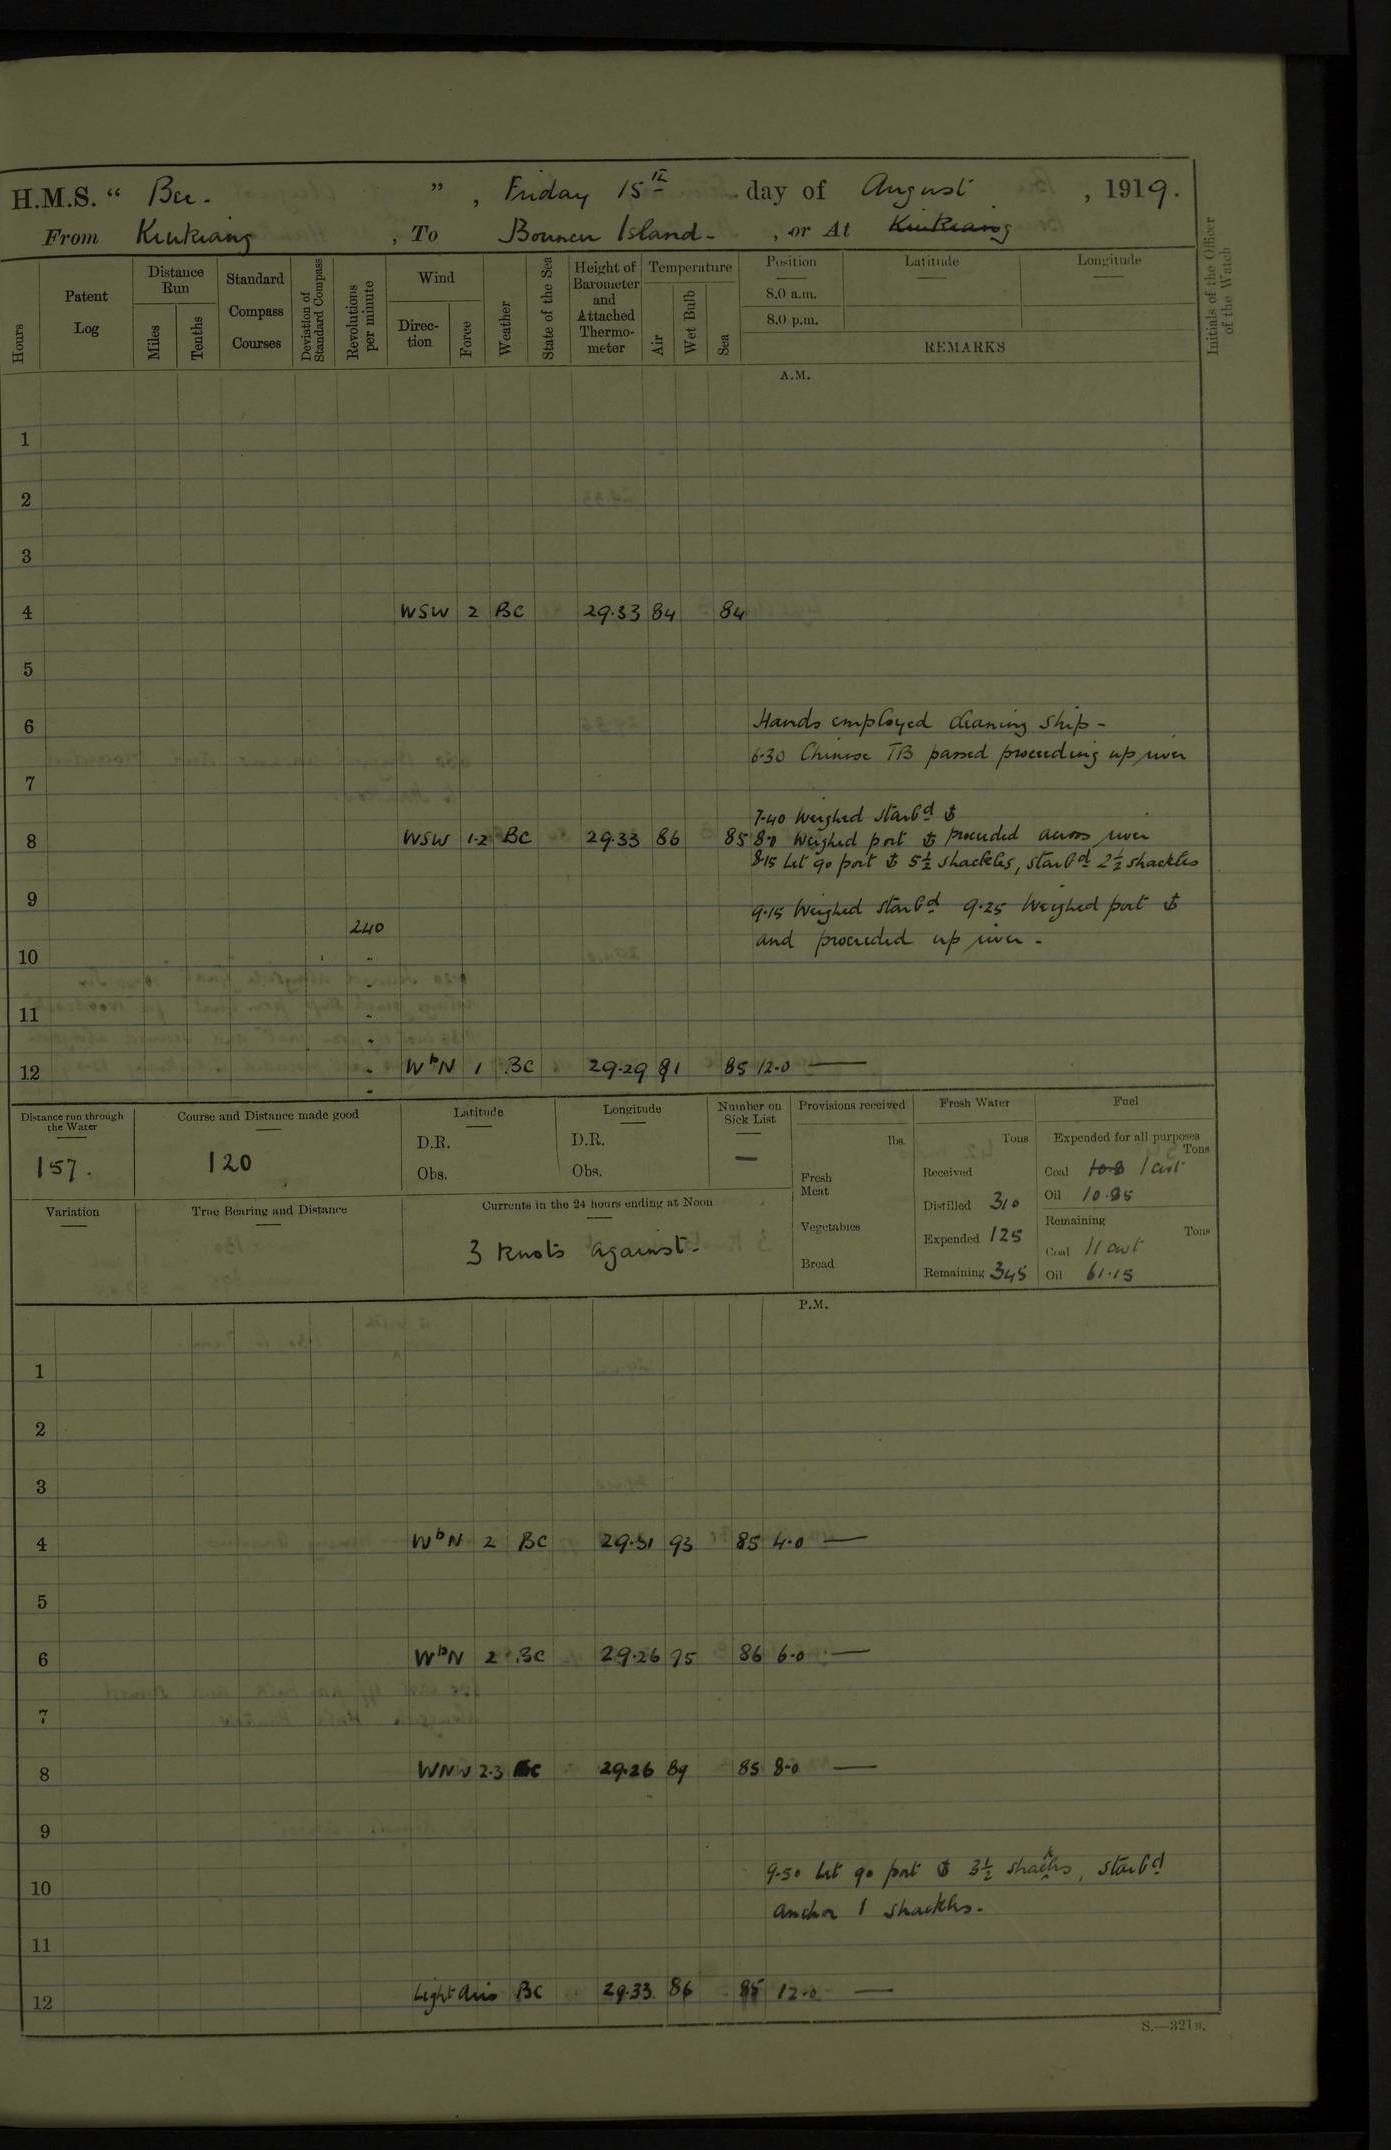 H.M.S. “ Bee. ” , Friday 15th day of August , 1919.
From Kiukiang , To Bouncer Island. , or At Kiukiang
Hours
Patent Log
Distance Run
Miles
Tenths
Standard Compass Courses
Deviation of Standard Compass
Revolutions per minute
Wind
Direc-tion
Force
Weather
State of the Sea
Height of Barometer and Attached Thermo-meter
Temperature
Air
Wet Bulb
Sea
Position Latitude Longitude
8.0 a.m.
8.0 p.m.
REMARKS
Initials of the Officer of the Watch
A.M.
1
2
3
4 WSW 2 BC 29.33 84 84
5
6 Hands employed cleaning ship -
6.30 Chinese TB passed proceeding up river
7
7.40 Weighed starbd ⚓
8 WSW 1-2 BC 29.33 86 85 8.0 Weighed port ⚓ proceeded across river
8.15 Let go port ⚓ 5½ shackles, starbd 2½ shackles
9 9.15 Weighed starbd 9.25 Weighed port ⚓
240 and proceeded up river -
10 "
"
11 "
"
12 " WbN 1 BC 29.29 91 85 12.0 —
"
Distance run through the Water
157.
Course and Distance made good
120
Latitude
D.R.
Obs.
Longitude
D.R.
Obs.
Number on Sick List
—
Provisions received
lbs.
Fresh Meat
Vegetables
Bread
Fresh Water
Tons
Received
Distilled 310
Expended 125
Remaining 345
Fuel
Expended for all purposes
Tons
Coal 10.8 1 cwt
Oil 10.85
Remaining
Tons
Coal 11 cwt
Oil 61.15
Variation
True Bearing and Distance
Currents in the 24 hours ending at Noon
3 knots against.
P.M.
1
2
3
4 WbN 2 BC 29.31 93 85 4.0 —
5
6 WbN 2 BC 29.26 95 86 6.0 —
7
8 WNW 2-3 BC 29.26 89 85 8.0 —
9
9.50 Let go port ⚓ 3½ shackles, starbd
10 anchor 1 shackles.
11
12 Light airs BC 29.33 86 85 12.0 —
S.—321B.